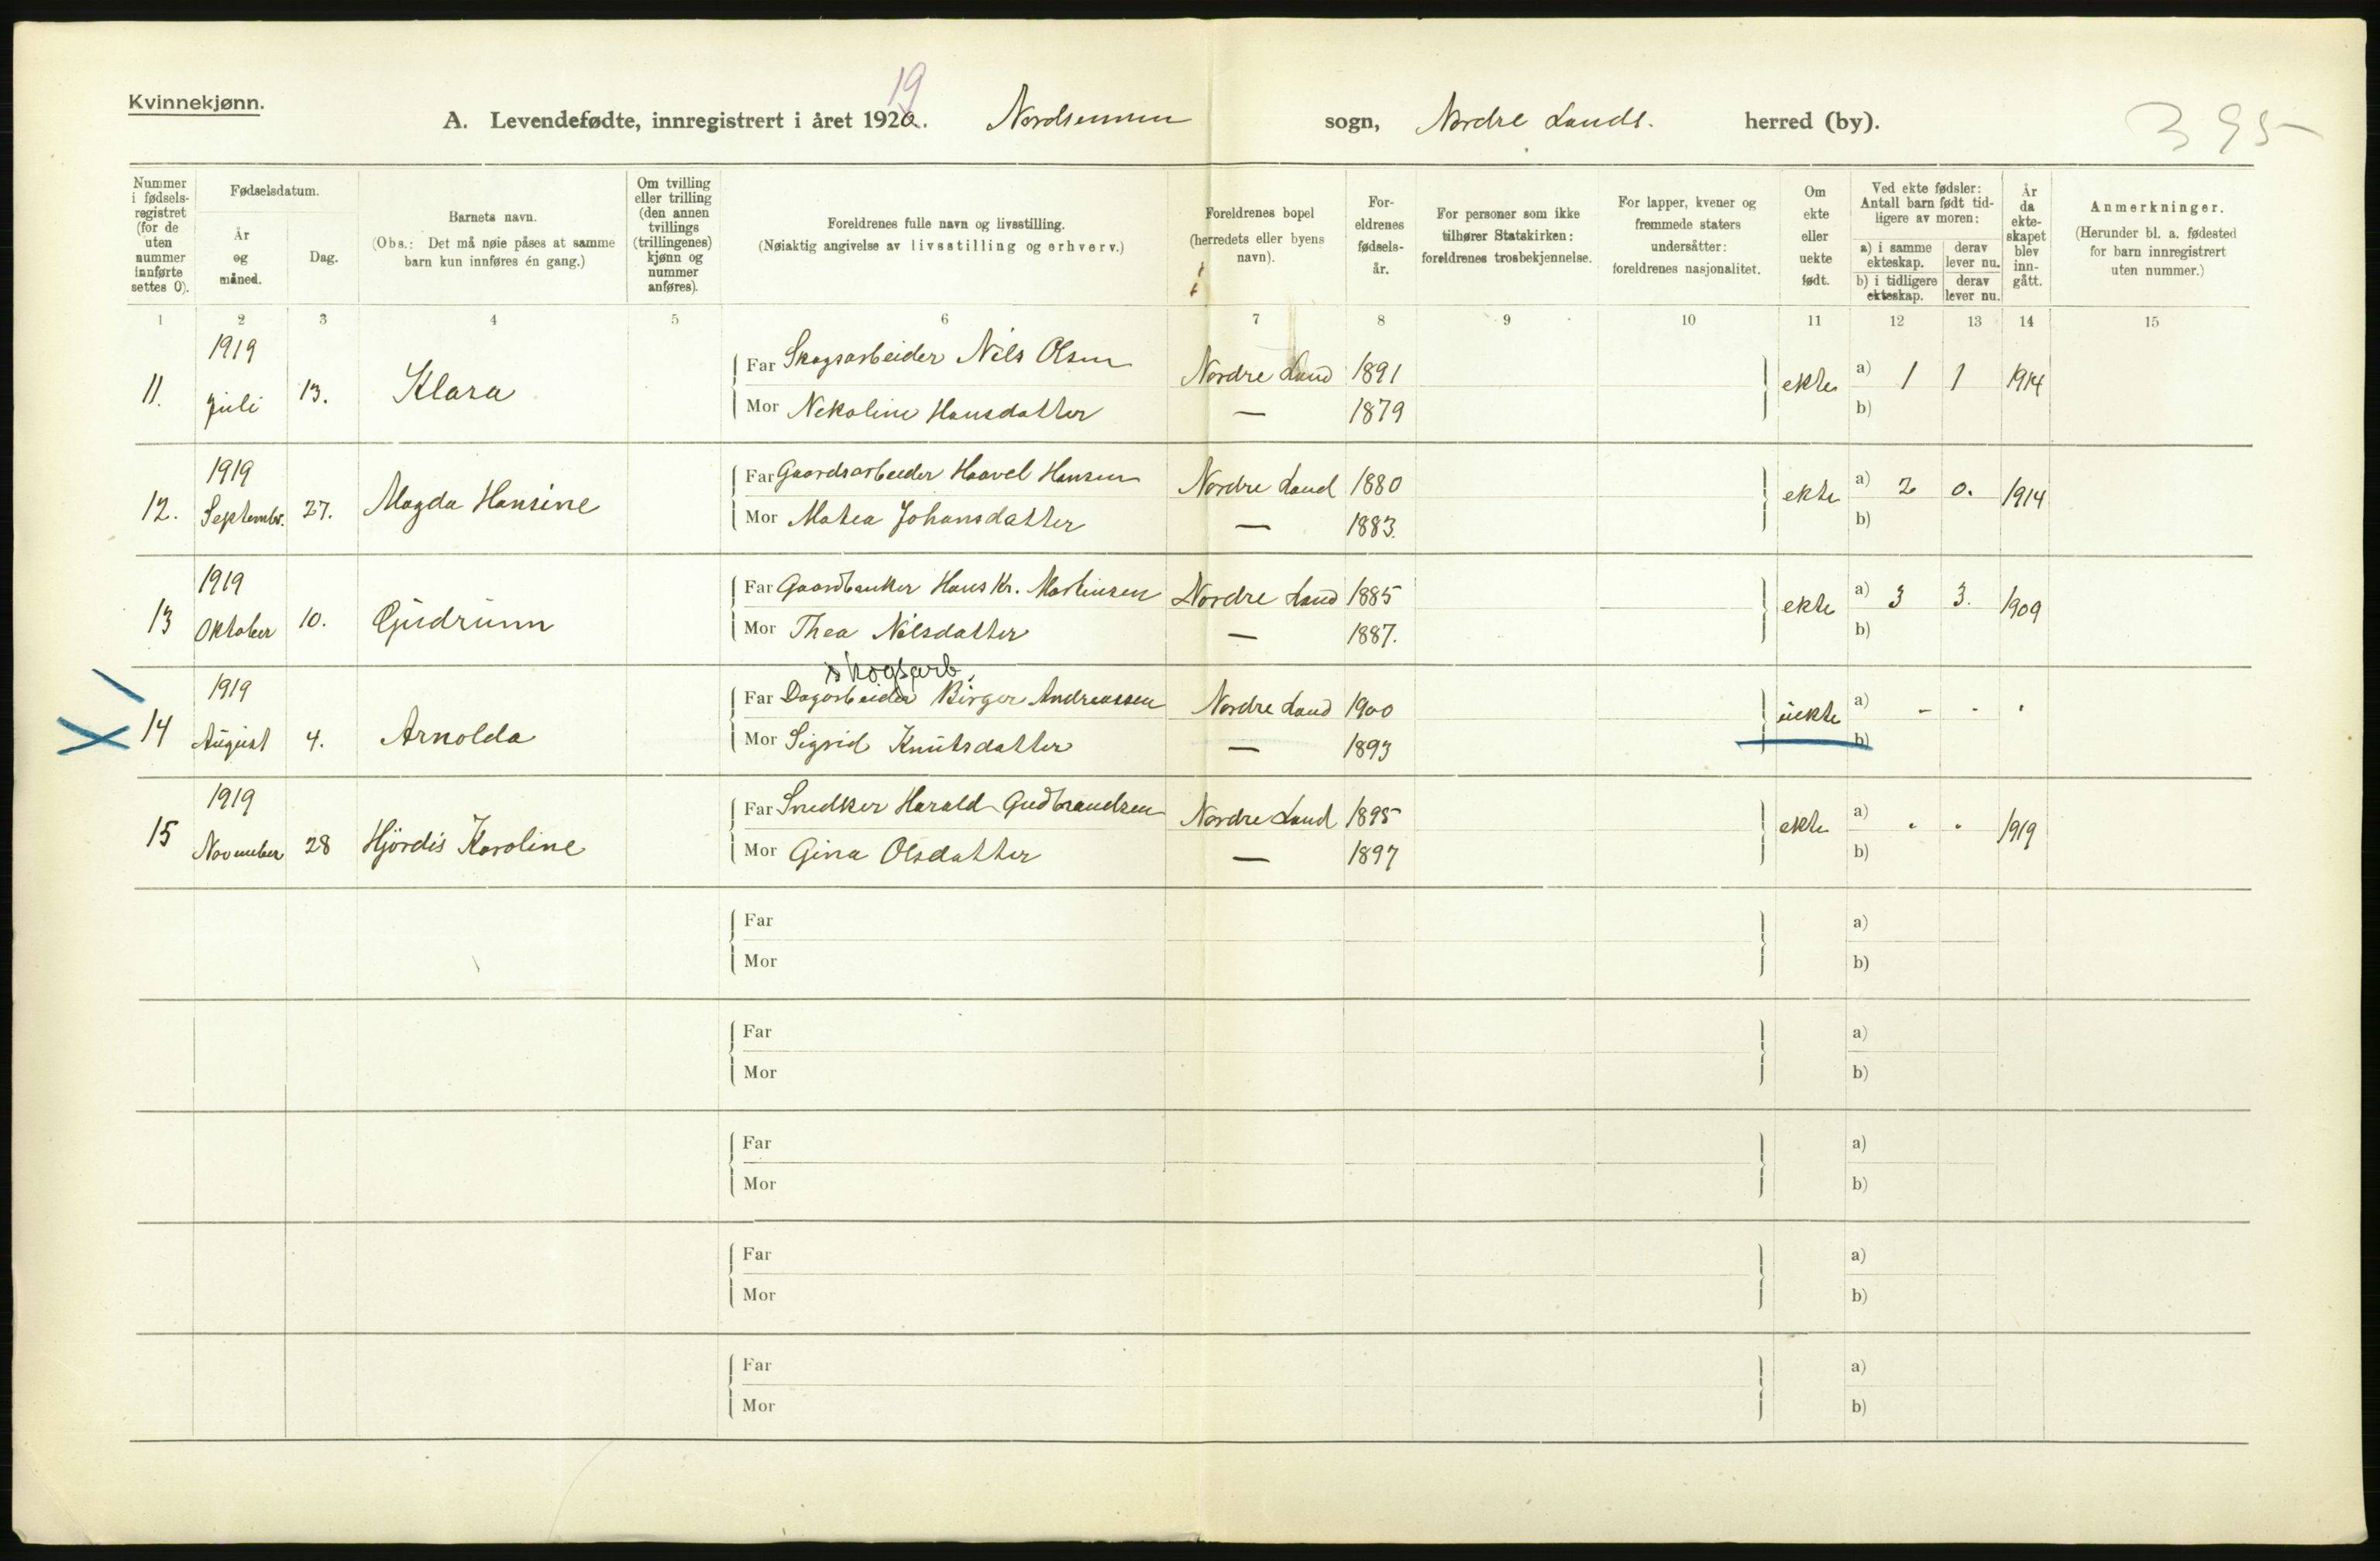 Kvinnekjønn.
19
A. Levendefødte, innregistrert i året 1920. Nordsinnen sogn, Nordre Lands. herred (by).
395
Nummer i fødsels-registret (for de uten nummer innførte settes 0).
Fødselsdatum.
År og måned.
Dag.
Barnets navn.
(Obs.: Det må nøie påses at samme barn kun innføres én gang.)
Om tvilling eller trilling (den annen tvillings (trillingenes) kjønn og nummer anføres).
Foreldrenes fulle navn og livsstilling.
(Nøiaktig angivelse av livsstilling og erhverv.)
Foreldrenes bopel (herredets eller byens navn).
For-eldrenes fødsels-år.
For personer som ikke tilhører Statskirken: foreldrenes trosbekjennelse.
For lapper, kvener og fremmede staters undersåtter: foreldrenes nasjonalitet.
Om ekte eller uekte født.
Ved ekte fødsler: Antall barn født tid-ligere av moren:
a) i samme ekteskap.
derav lever nu.
b) i tidligere ekteskap.
derav lever nu.
År da ekte-skapet blev inn-gått.
Anmerkninger.
(Herunder bl. a. fødested for barn innregistrert uten nummer.)
1 2 3 4 5 6 7 8 9 10 11 12 13 14 15
11. 1919 juli 13. Klara
Far Skogsarbeider Nils Olsen Nordre Land 1891 ekte a) 1 1 1914
Mor Nekoline Hansdatter — 1879 b)
12. 1919 Septembr. 27. Magda Hansine
Far Gaardsarbeider Haavel Hansen Nordre Land 1880 ekte a) 2 0. 1914
Mor Matea Johansdatter — 1883. b)
13 1919 Oktober 10. Gudrunn
Far Gaardbruker Hans Kr. Martinsen Nordre Land 1885 ekte a) 3 3. 1909
Mor Thea Nilsdatter — 1887. b)
skogsarb.
X 14 1919 August 4. Arnolda
Far Dagarbeider Birger Andreassen Nordre Land 1900 uekte a) - - .
Mor Sigrid Knutsdatter — 1893 b)
15 1919 November 28 Hjördis Karoline
Far Snedker Harald Gudbrandsen Nordre Land 1895 ekte a) . . 1919
Mor Gina Olsdatter — 1897 b)
Far a)
Mor b)
Far a)
Mor b)
Far a)
Mor b)
Far a)
Mor b)
Far a)
Mor b)